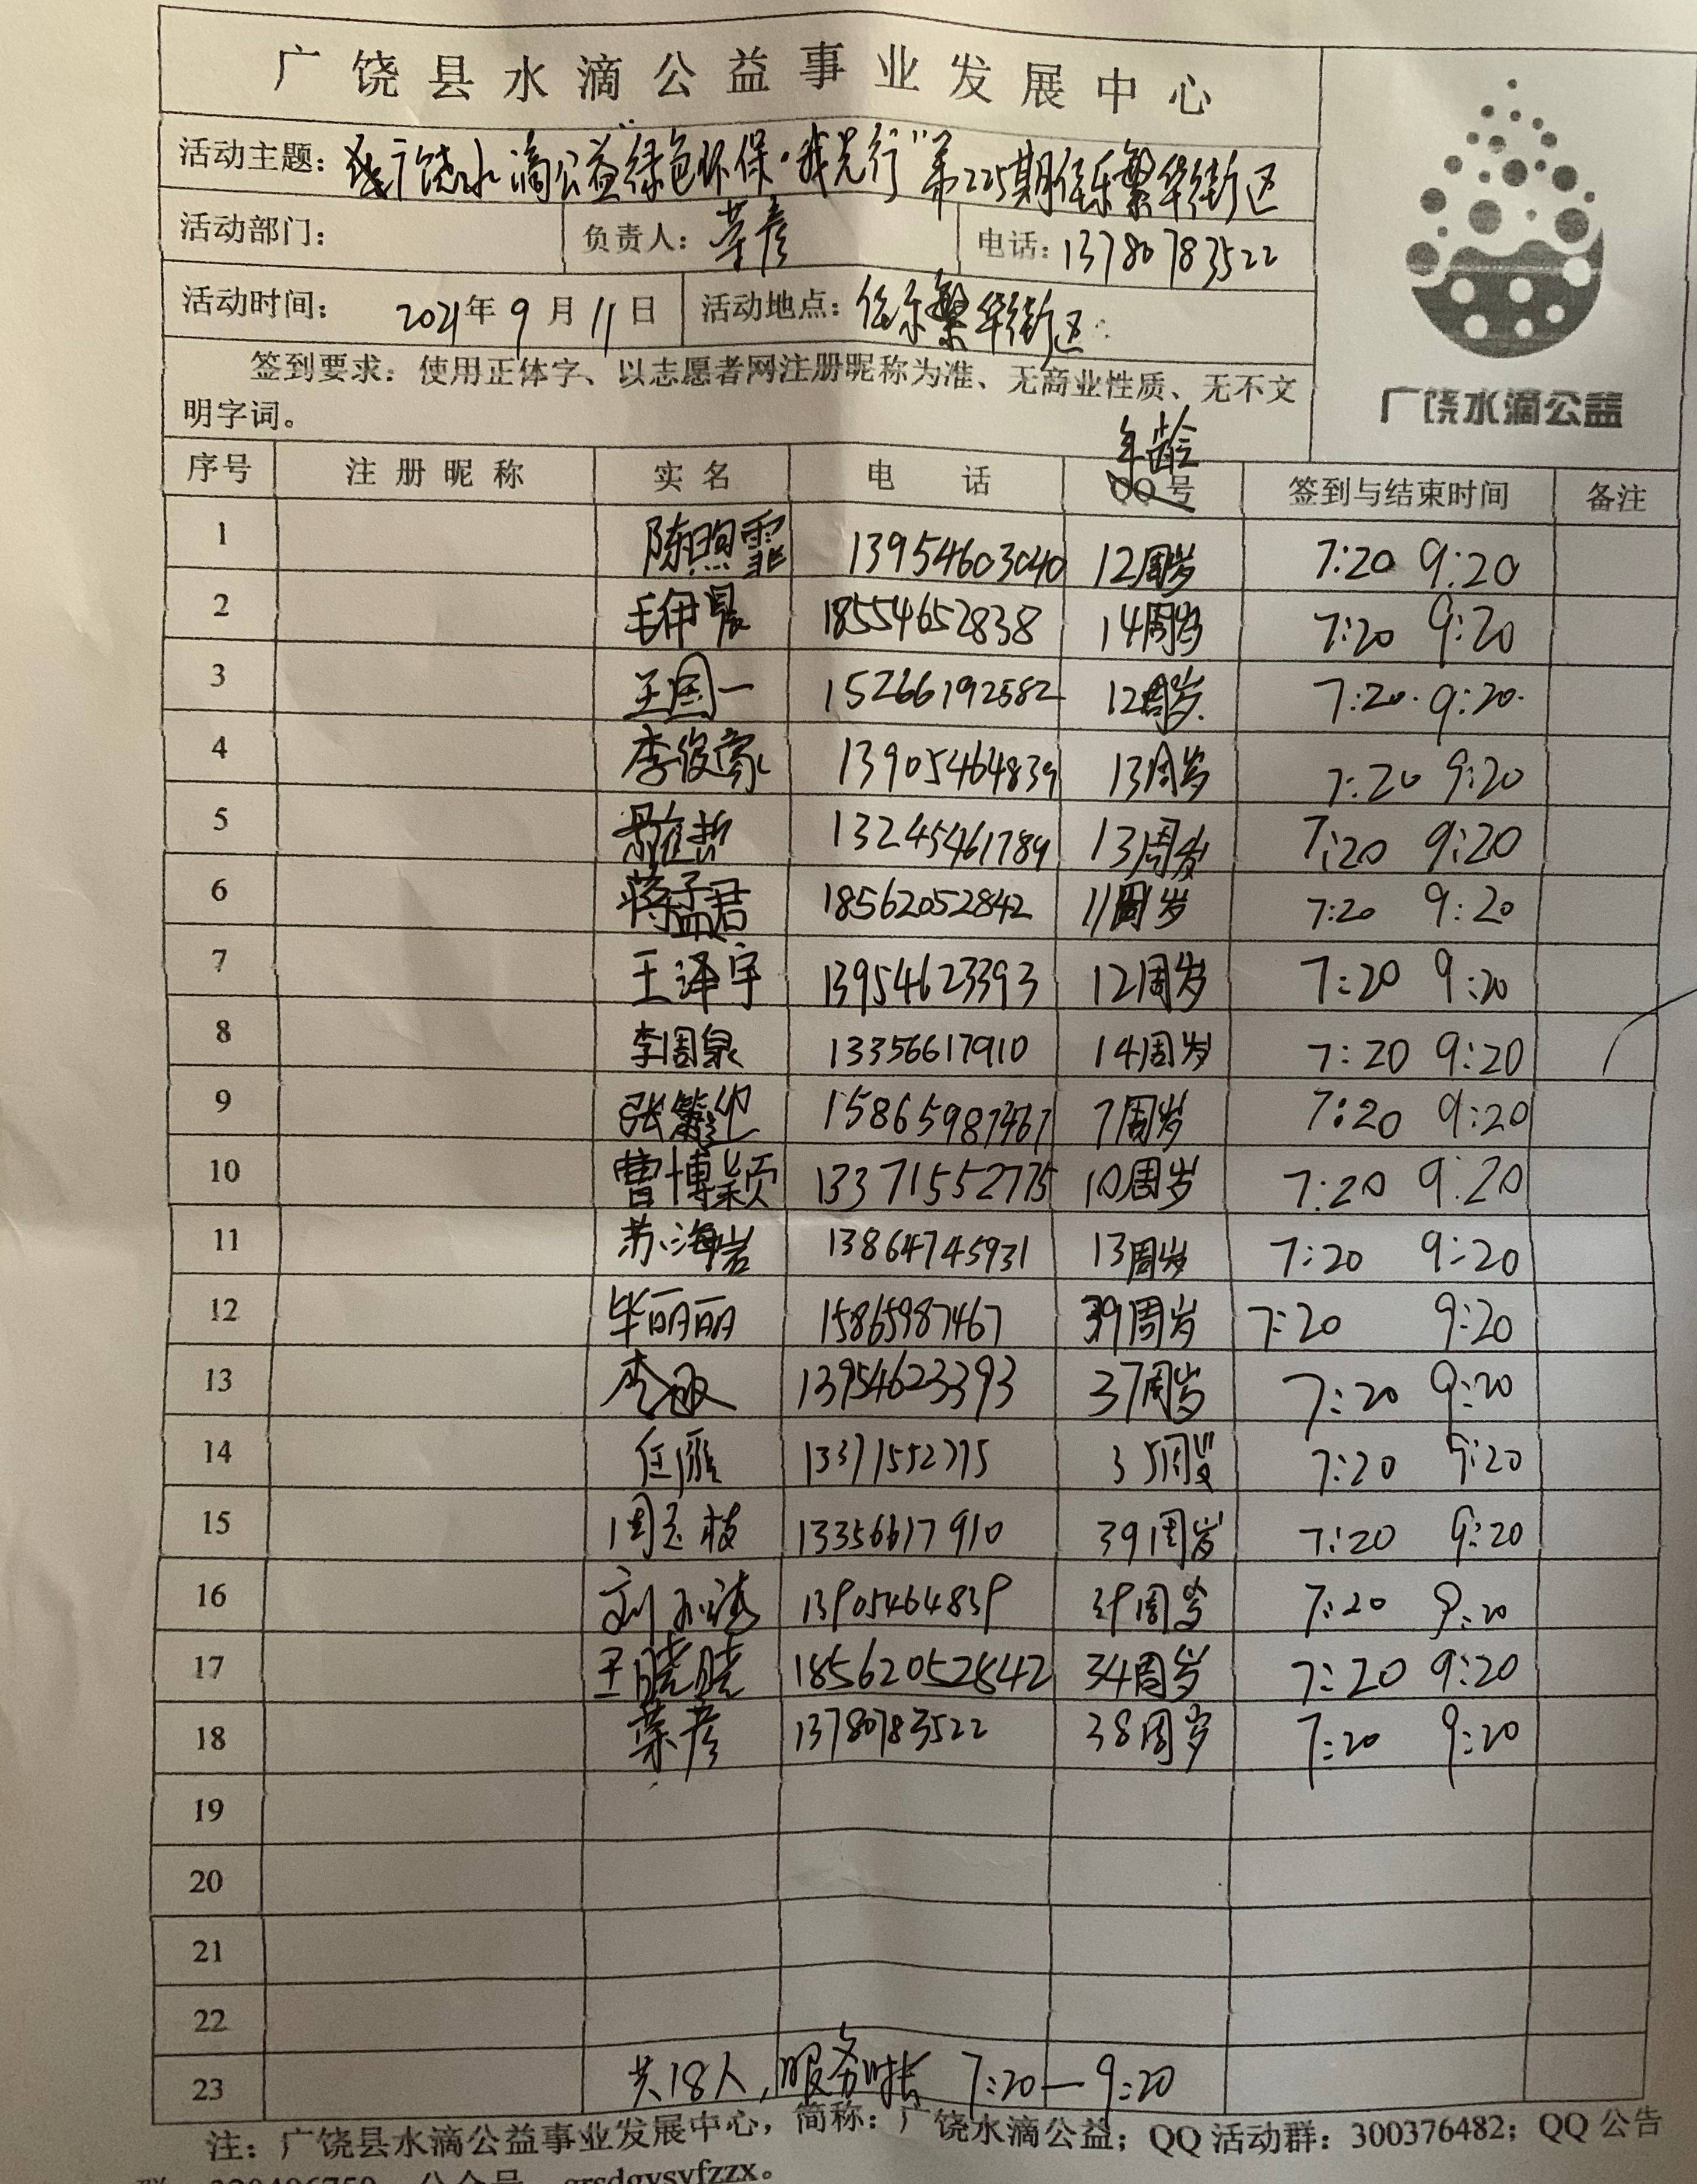 广饶县水滴公益事业发展中心
活动主题：广饶水滴公益绿色环保·我先行"第225期佳乐繁华街区
活动部门： 负责人：荣彦 电话：13780783522
活动时间： 2021年9月11日 活动地点：佳乐繁华街区
签到要求：使用正体字、以志愿者网注册昵称为准、无商业性质、无不文
明字词。
广饶水滴公益
年龄
序号 注册昵称 实名 电话 QQ号 签到与结束时间 备注
1 陈煦霏 13954603040 12周岁 7:20 9:20
2 毛伊晨 18554652838 14周岁 7:20 9:20
3 王国一 15266192582 12周岁 7:20 9:20
4 李俊豪 13905464839 13周岁 7:20 9:20
5 13245461789 13周岁 7:20 9:20
6 蒋孟君 18562052842 11周岁 7:20 9:20
7 王泽宇 13954623393 12周岁 7:20 9:20
8 李周泉 13356617910 14周岁 7:20 9:20
9 张 15865987467 7周岁 7:20 9:20
10 曹博颖 13371552775 10周岁 7:20 9:20
11 苏海岩 13864745931 13周岁 7:20 9:20
12 毕丽丽 15865987467 39周岁 7:20 9:20
13 李敏 13954623393 37周岁 7:20 9:20
14 任雁 13371552775 35周岁 7:20 9:20
15 周玉枝 13356617910 39周岁 7:20 9:20
16 刘 13905464839 39周岁 7:20 9:20
17 王晓晓 18562052842 34周岁 7:20 9:20
18 荣彦 13780783522 38周岁 7:20 9:20
19
20
21
22
23 共18人，服务时长 7:20—9:20
注：广饶县水滴公益事业发展中心，简称：广饶水滴公益；QQ活动群：300376482；QQ公告